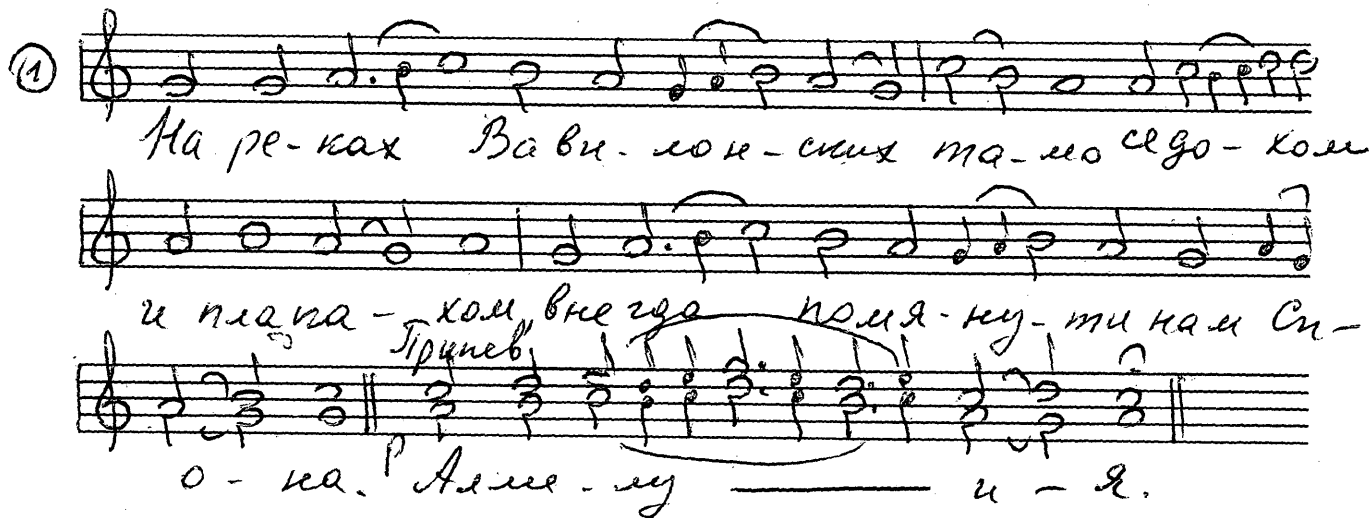 1
На ре-ках Вави-лон-ских та-мо седо-хом
и плака-хом, внегда помя-ну-ти нам Си-
Припев
о-на. Алли-лу — и-я.